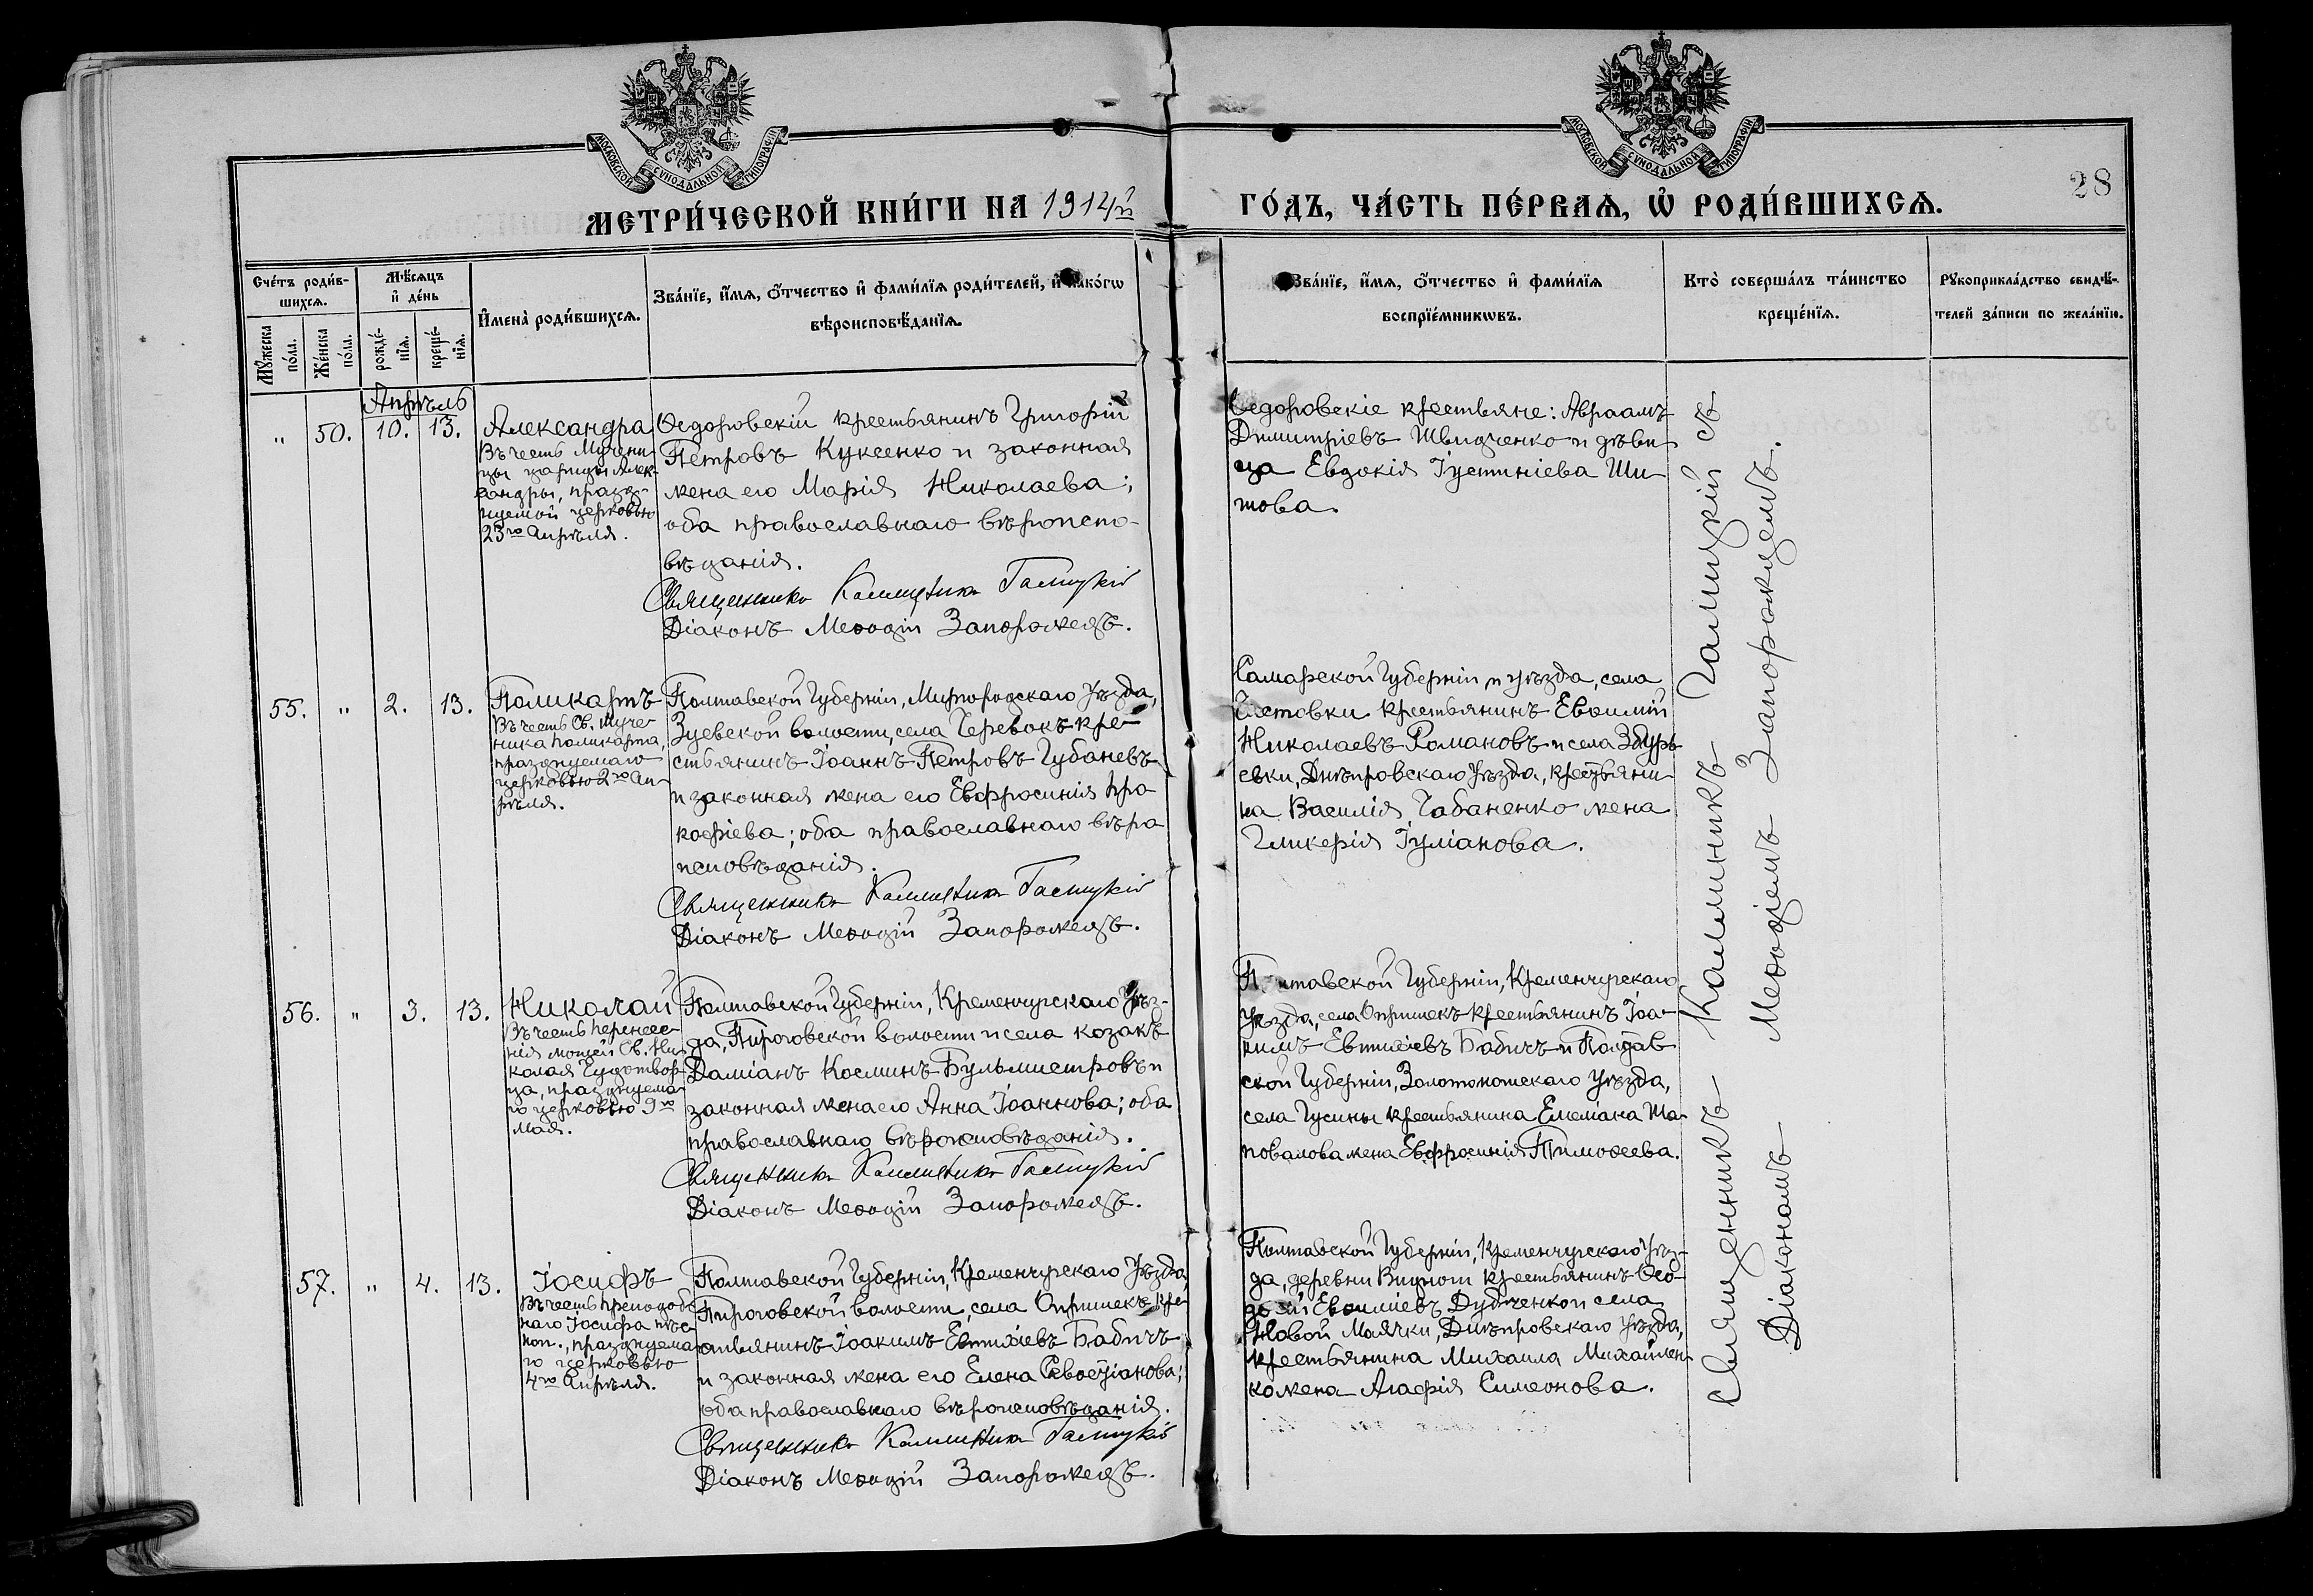 МОСКОВСКОЙ СУНОДАЛЬНОЙ ТИПОГРАФІИ
МЕТРИ́ЧЕСКОЙ КНИ́ГИ НА 1914й
Сче́тъ роди́в-
шихся.
Мѣ́сяцъ
и҆ де́нь
Мꙋ́жеска
по́ла.
Же́нска
по́ла.
рожде́-
нїя.
креще́-
нїя.
И҆мена̀ роди́вшихся.
Зва́нїе, и҆́мя, ѻ҆́тчество и҆ фами́лїя роди́телей, и҆ како́гѡ
вѣроисповѣ́данїя.
Апрѣль
" 50. 10. 13.
Александра
Въ честь Мучени-
цы царицы Алек-
сандры, празд-
нуемой церковью
23го Апрѣля.
Ѳедоровскій крестьянинъ Григорій
Петровъ Куксенко и законная
жена его Марія Николаева;
оба православнаго вѣроиспо-
вѣданія.
Священникъ Каллиникъ Галицкій
Діаконъ Меѳодій Запорожецъ.
55. " 2. 13.
Поликарпъ
Въ честь Св. Муче-
ника Поликарпа,
празднуемаго
церковью 2го Ап-
рѣля.
Полтавской Губерніи, Миргородскаго Уѣзда,
Зуевской волости, села Черевокъ кре-
стьянинъ Іоаннъ Петровъ Губаневъ
и законная жена его Евфросинія Про
кофіева; оба православнаго вѣро
исповѣданія.
Священникъ Каллиникъ Галицкій
Діаконъ Меѳодій Запорожецъ.
56. " 3. 13.
Николай
Въ честь перенесе-
нія мощей Св. Ни-
колая Чудотвор-
ца, празднуема-
го церковью 9го
Мая.
Полтавской Губерніи, Кременчугскаго Уѣз-
да, Пироговской волости и села козакъ
Даміанъ Косминъ Бульмистровъ и
законная жена его Анна Іоаннова; оба
православнаго вѣроисповѣданія.
Священникъ Каллиникъ Галицкій
Діаконъ Меѳодій Запорожецъ.
57. " 4. 13.
Іосифъ
Въ честь преподоб-
наго Іосифа пѣс-
ноп., празднуема-
го церковью
4го Апрѣля.
Полтавской Губерніи, Кременчугскаго Уѣзда,
Пироговской волости, села Опришекъ кре-
стьянинъ Іоакимъ Евтихіевъ Бабичъ
и законная жена его Елена Севастіанова;
оба православнаго вѣроисповѣданія.
Священникъ Каллиникъ Галицкій
Діаконъ Меѳодій Запорожецъ.
МОСКОВСКОЙ СУНОДАЛЬНОЙ ТИПОГРАФІИ
28
ГО́ДЪ, ЧА́СТЬ ПЕ́РВАѦ, Ѡ҆ РОДИ́ВШИХСѦ.
Зва́нїе, и҆́мя, ѻ҆́тчество и҆ фами́лїя
воспрїе́мникѡвъ.
Кто̀ соверша́лъ та́инство
креще́нїя.
Рꙋкоприкла́дство свидѣ́-
телей за́писи по жела́нїю.
Ѳедоровскіе крестьяне: Авраамъ
Димитріевъ Швидченко и дѣви-
ца Евдокія Іустиніева Ши-
това.
Самарской Губерніи и уѣзда, села
Чистовки крестьянинъ Евѳимій
Николаевъ Романовъ и села Збурь-
евки, Днѣпровскаго Уѣзда, крестьяни-
на Василія Чабаненко жена
Гликерія Іуліанова.
Полтавской Губерніи, Кременчугскаго
Уѣзда, села Опришекъ крестьянинъ Іоа-
кимъ Евтихіевъ Бабичъ и Полтав-
ской Губерніи, Золотоношскаго Уѣзда,
села Гусины крестьянина Емеліана Ша-
повалова жена Евфросинія Тимоѳеева.
Полтавской Губерніи, Кременчугскаго Уѣз-
да, деревни Видной крестьянинъ Ѳео-
досій Евѳиміевъ Дудченко и села
Новой Маячки, Днѣпровскаго Уѣзда,
крестьянина Михаила Михайлен-
ко жена Агафія Симеонова.
Священникъ Каллиникъ Галицкій съ
Діакономъ Меѳодіемъ Запорожцемъ.